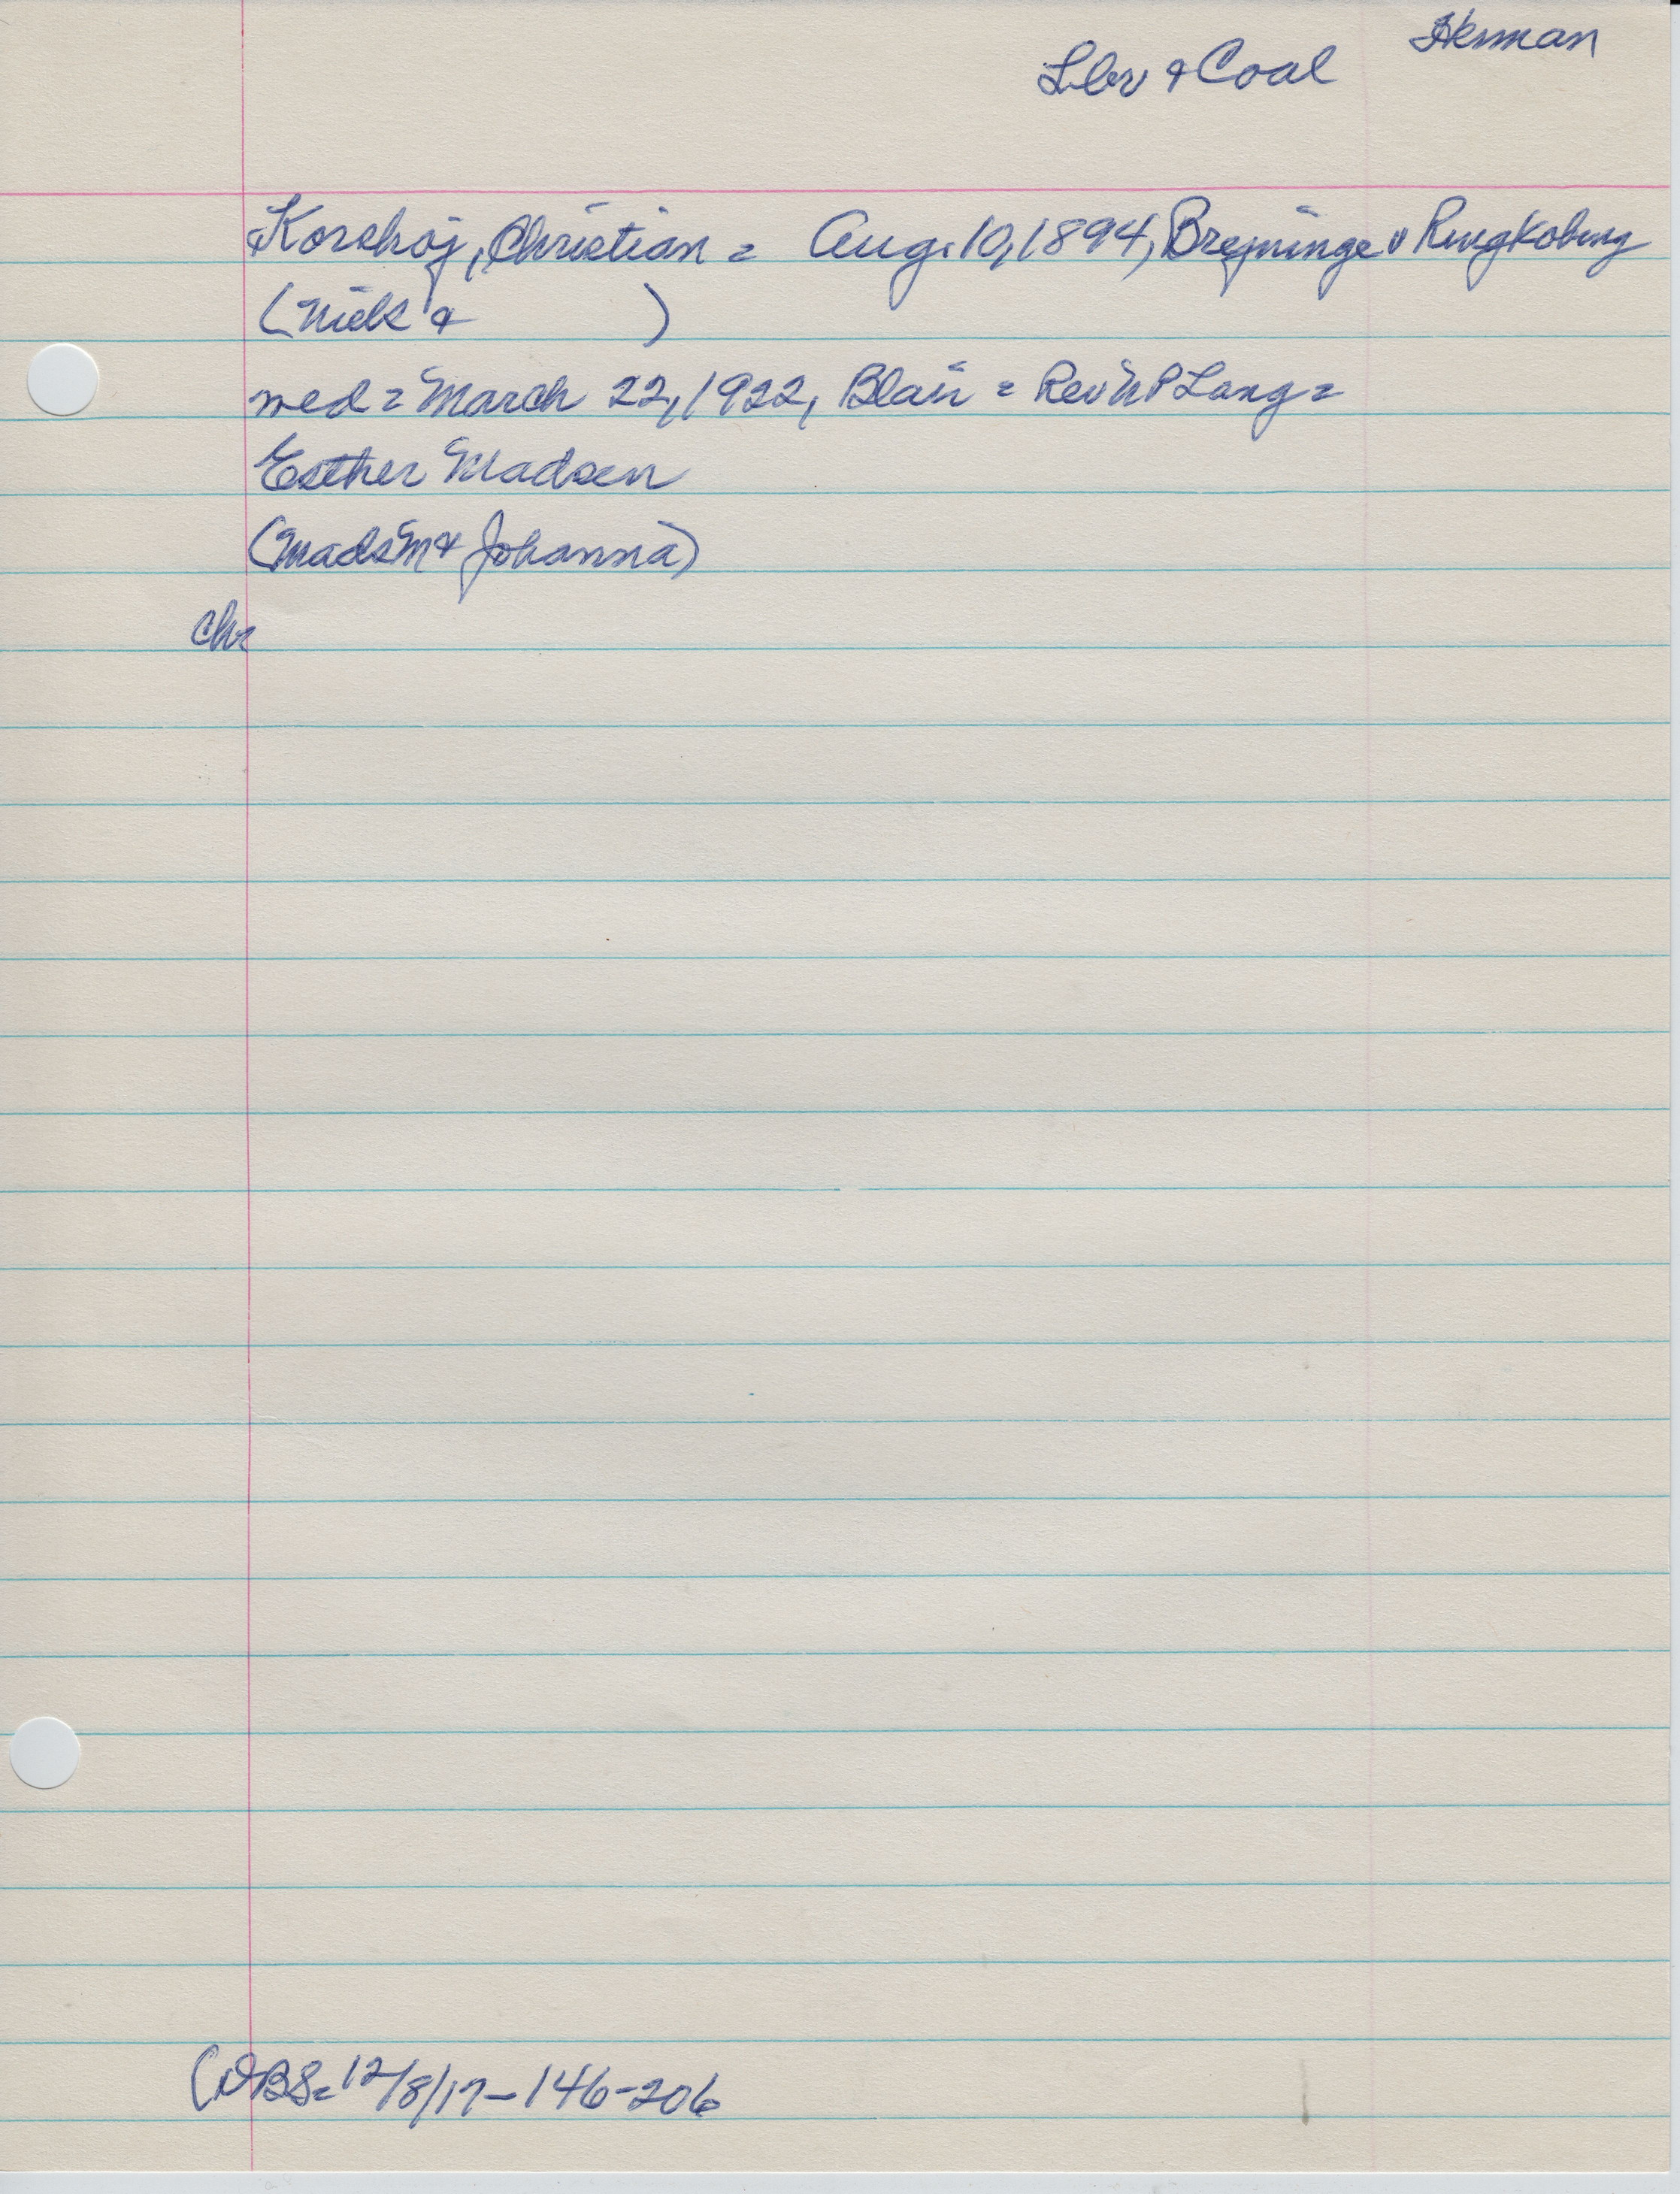 Herman
Lbr & Coal
Korshøj, Christian = Aug. 10, 1894, Brejninge v Ringkobing
(Niels & )
wed = March 22, 1922, Blair = Rev NP Lang =
Esther Madsen
(Mads M & Johanna)
ch=
(DBS= 12/8/17-146-206